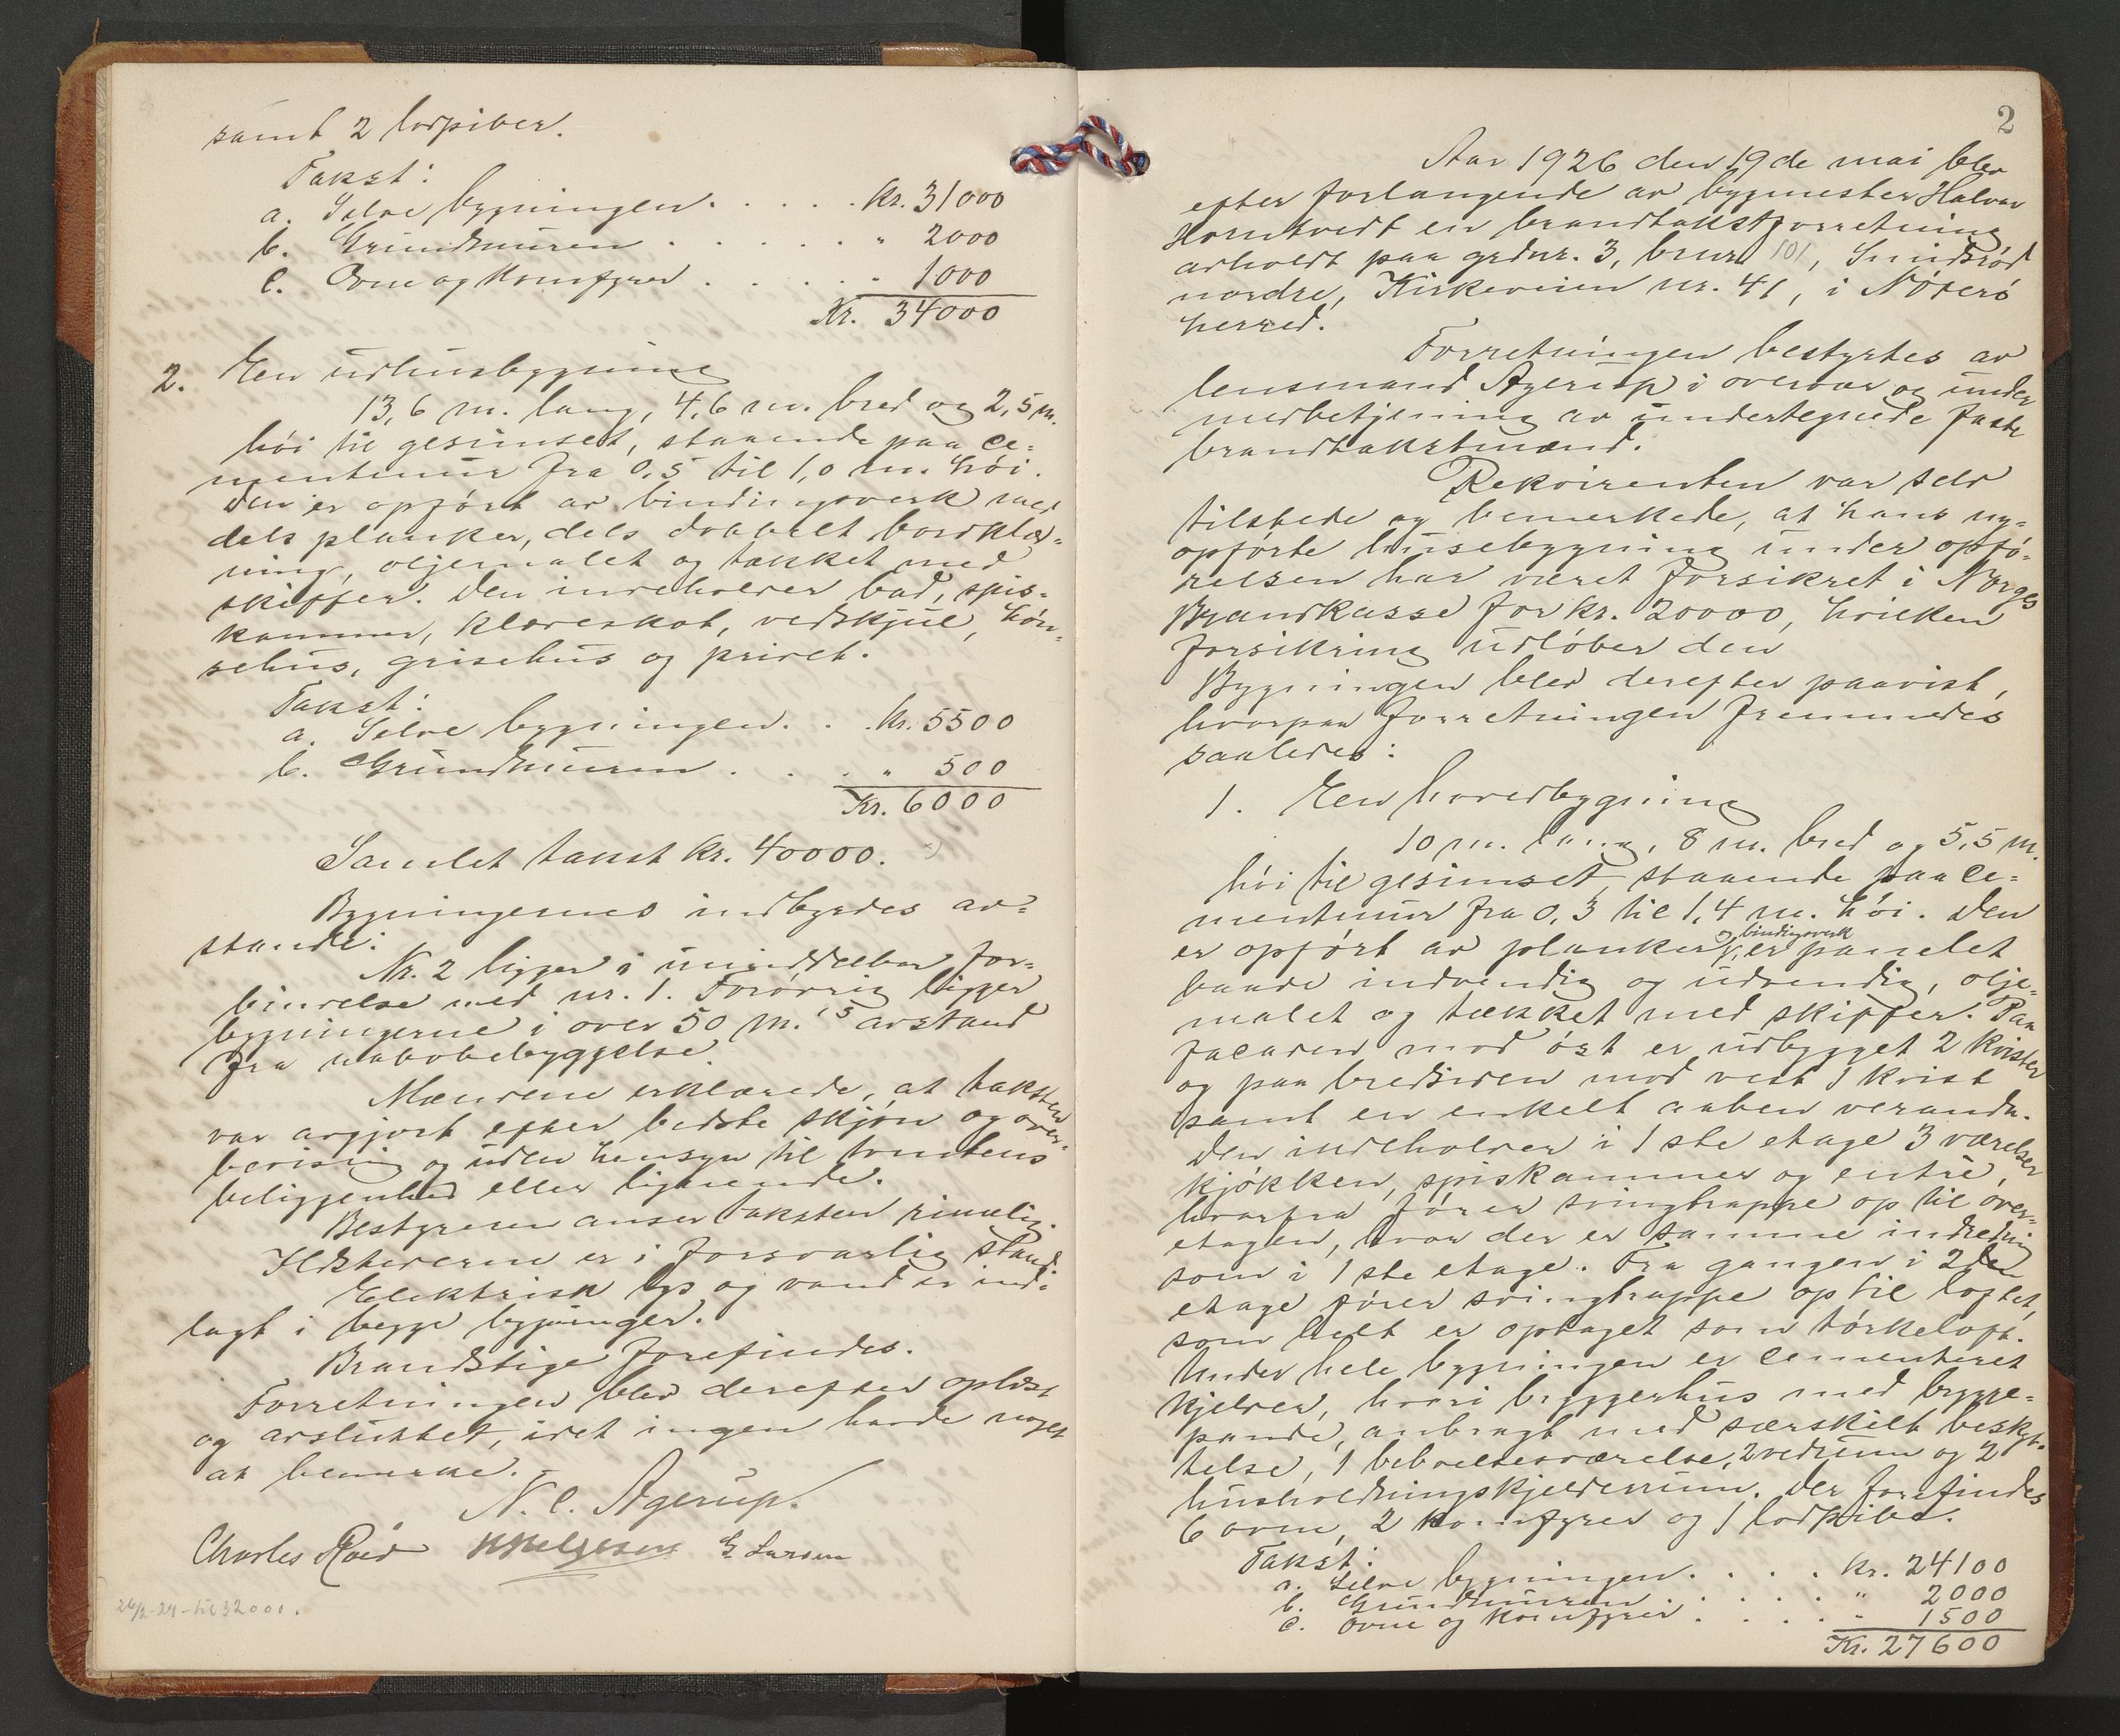 samt 2 lodpiber.
Takst:
a. Selve bygningen. . . . . kr. 31000
b. Grundmuren . . . . . . " 2000
c. Ovne og Komfyrer . . . . . " 1000
Kr. 34000
2. En udhusbygning
13,6 m. lang, 4,6 m. bred og 2,5 m.
høi til gesimset, staaende paa ce-
mentmur fra 0,5 til 1,0 m. høi.
Den er opført av bindingsverk med
dels planker, dels dobbelt bordklæd-
ning, oljemalet og tækket med
skiffer. Den indeholder bad, spis-
kammer, klæreskot, vedskjul, høn-
sehus, grisehus og privet.
Takst:
a. Selve bygningen. . . kr. 5500
b. Grundmuren . . . " 500
Kr. 6000
Samlet takst kr. 40000.
Bygningernes indbyrdes av-
stande:
Nr. 2 ligger i umiddelbar for-
bindelse med nr. 1. Forøvrig ligger
bygningerne i over 50 m.'s avstand
fra nabobebyggelse.
Mændene erklærede, at taksten
var avgjort efter bedste skjøn og over-
bevisning og uden hensyn til tomtens
beliggenhed eller lignende.
Bestyreren anser taksten rimelig.
Ildstederne er i forsvarlig stand.
Elektrisk lys og vand er ind-
lagt i begge bygninger.
Brandstige forefindes.
Forretningen blev derefter oplæst
og avsluttet, idet ingen havde noget
at bemerke.
N. C. Agerup.
Charles Røed HHelgesen G Larsen
26/2-29-til 32000.
2
Aar 1926 den 19de mai blev
efter forlangende av bygmester Halvor
Horntvedt en brandtakstforretning
avholdt paa grdnr. 3, brnr. 101, Smidsrød
nordre, Kirkeveien nr. 41, i Nøterø
herred.
Forretningen bestyrtes av
lensmand Agerup i overvær og under
medbetjening av undertegnede faste
brandtakstmænd.
Rekvirenten var selv
tilstede og bemerkede, at hans ny-
opførte husebygning under opfø-
relsen har været forsikret i Norges
Brandkasse for kr. 20000, hvilken
forsikring udløber den
Bygningen blev derefter paavist,
hvorpaa forretningen fremmedes
saaledes:
1. En hovedbygning
10 m. lang, 8 m. bred og 5,5 m.
høi til gesimset, staaende paa ce-
mentmur fra 0,3 til 1,4 m. høi. Den
er opført av planker og bindingsverk, er panelet
baade indvendig og udvendig, olje-
malet og tækket med skiffer. Paa
facaden mod øst er udbygget 2 kvister
og paa bredsiden mod vest 1 kvist
samt en enkelt aaben veranda.
Den indeholder i 1ste etage 3 værelser
kjøkken, spiskammer og entré,
hvorfra fører svingtrappe op til over-
etagen, hvor der er samme indredning
som i 1ste etage. Fra gangen i 2den
etage fører svingtrappe op til loftet,
som helt er optaget som tørkeloft.
Under hele bygningen er cementeret
kjelder, hvori bryggerhus med brygge-
pande, anbragt med særskilt beskyt-
telse, 1 beboelsesværelse, 2 vedrum og 2
husholdningskjelderrum. Der forefindes
6 ovne, 2 komfyrer og 1 lodpibe.
Takst:
a. Selve bygningen. . . . kr. 24100
b. Grundmuren . . . . . " 2000
c. Ovne og Komfyrer . . . . " 1500
Kr. 27600